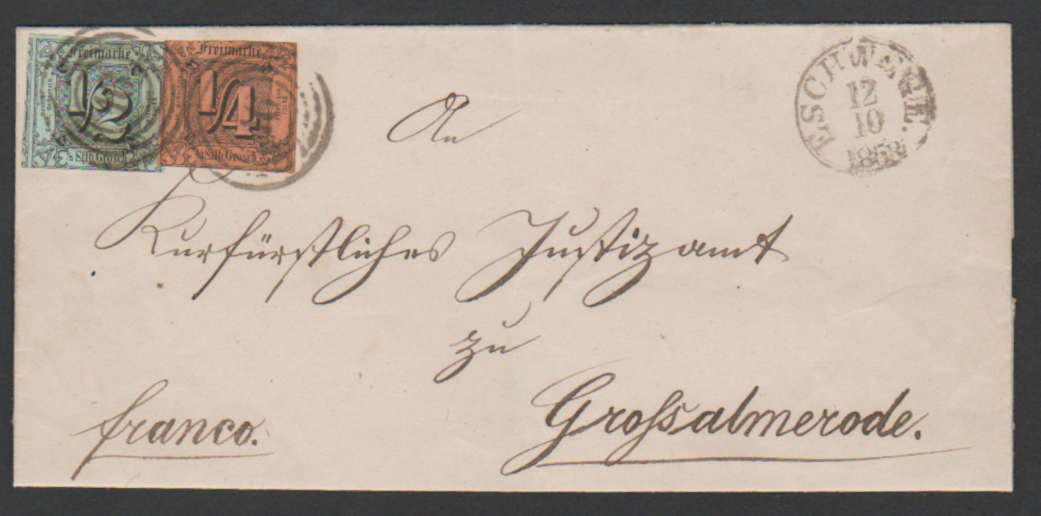 Freimarke
1/2
Silb. Grosch.
Freimarke
1/4
Silb. Grosch.
ESCHWEGE.
12
10
1858
An
Kurfürstliches Justizamt
zu
Grossalmerode.
franco.